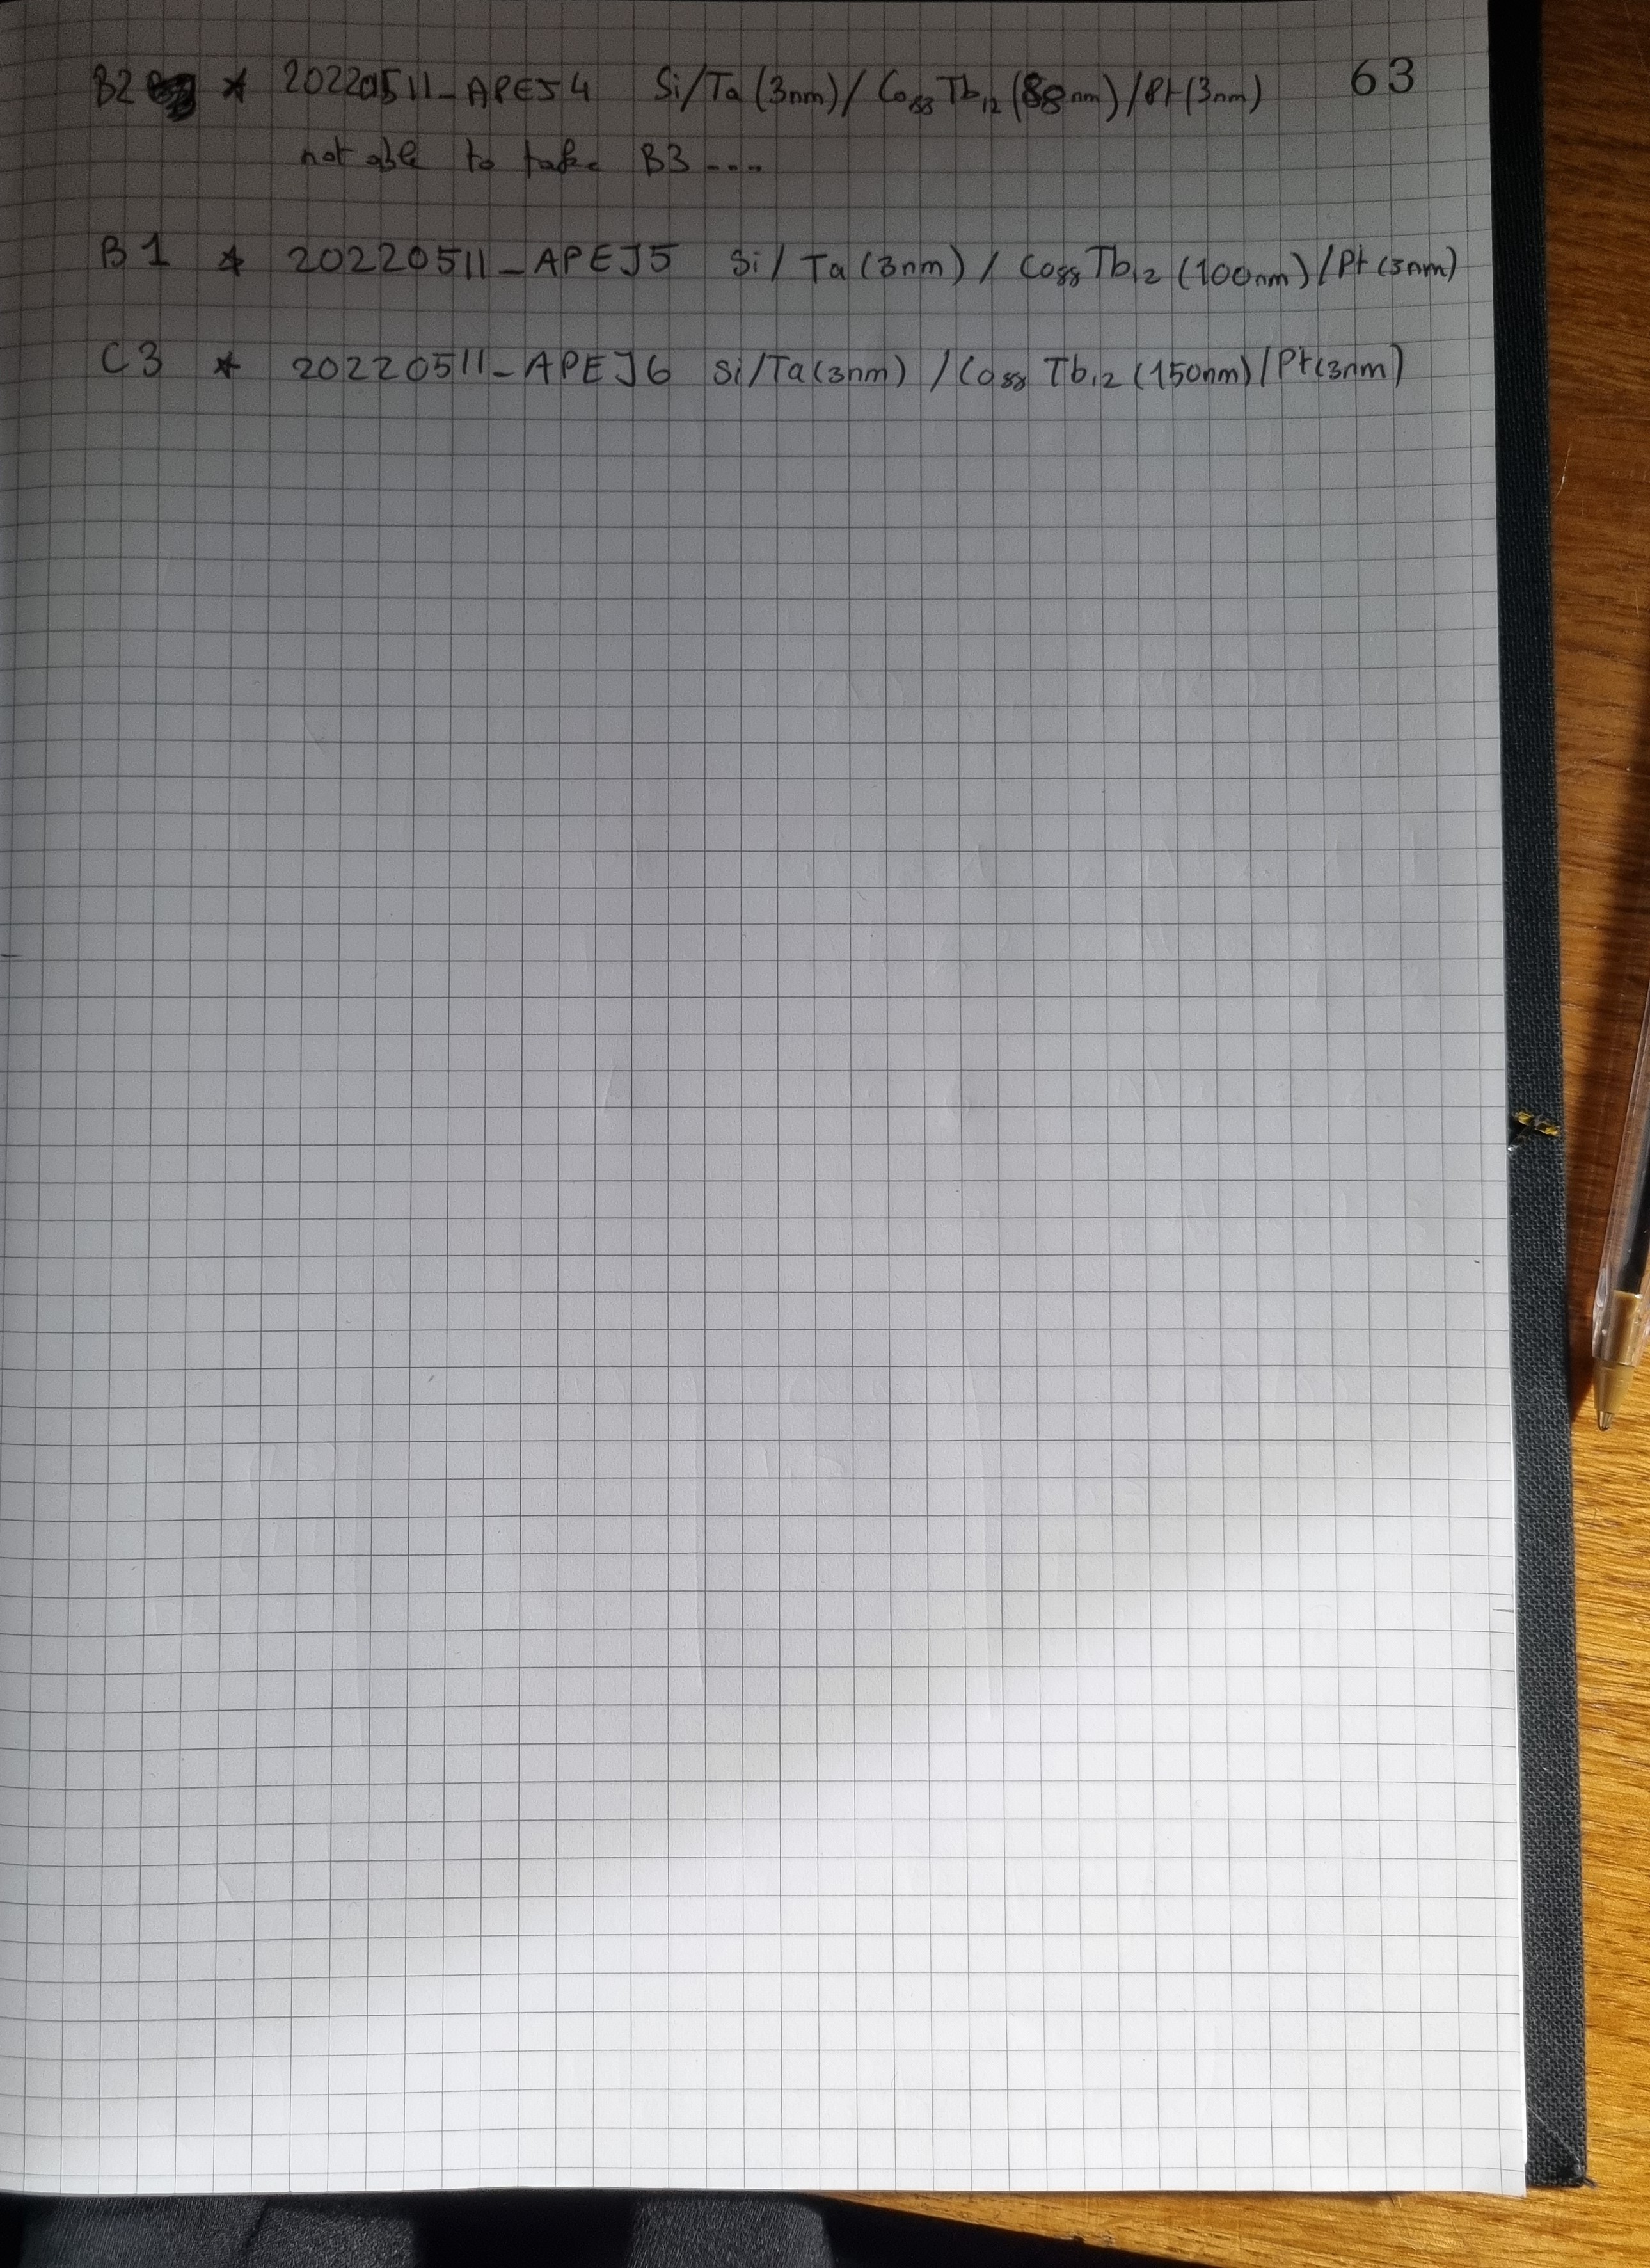 B2 * 20220511_APEJ4 Si/Ta(3nm)/Co₈₈Tb₁₂(88nm)/Pt(3nm) 63
not able to take B3 ....
B1 * 20220511_APEJ5 Si/Ta(3nm)/Co₈₈Tb₁₂(100nm)/Pt(3nm)
C3 * 20220511_APEJ6 Si/Ta(3nm)/Co₈₈Tb₁₂(150nm)/Pt(3nm)